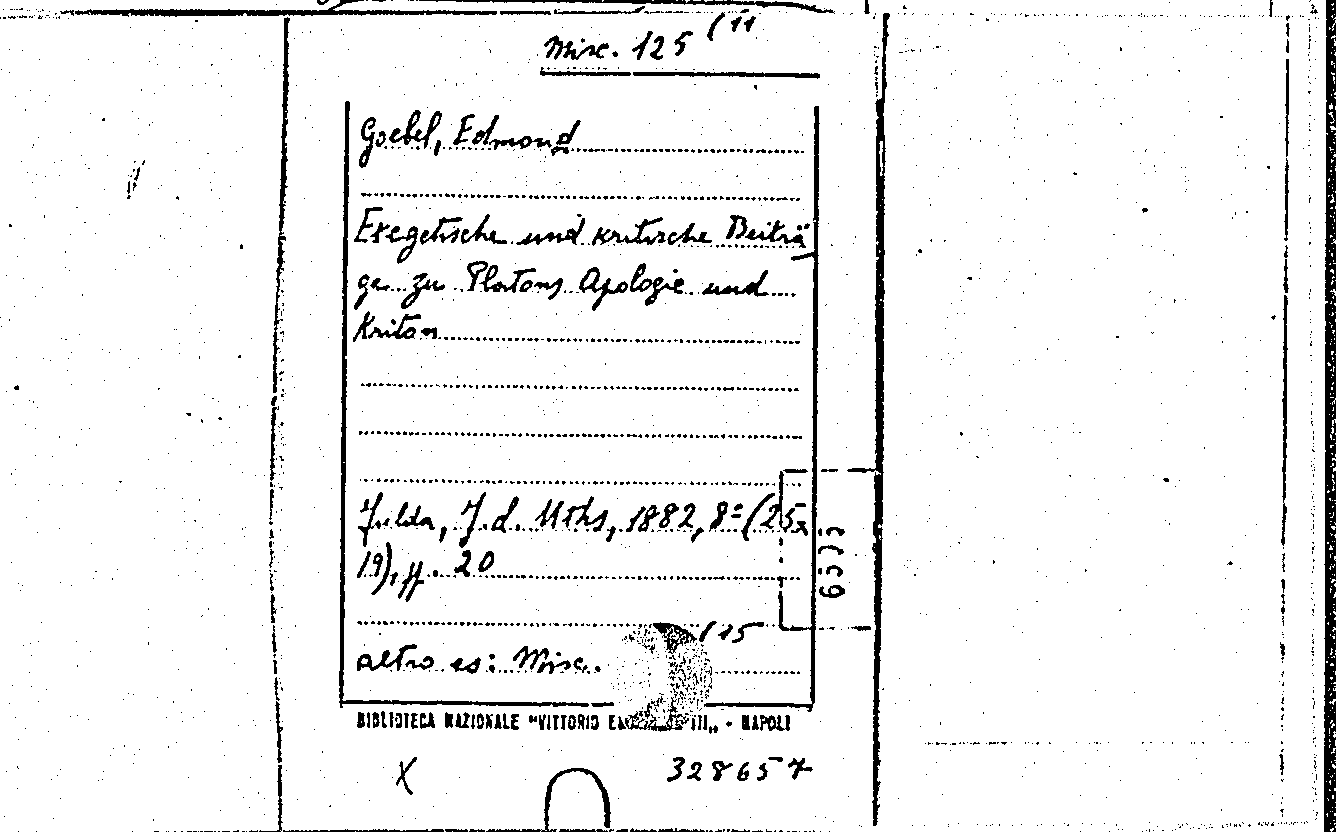 Misc. 125 (11
Goebel, Edmond
Exegetische und kritische Beiträ
ge zu Platons Apologie und
Kriton
Fulda, J. d. Uths, 1882, 8= (25x
19), pp. 20
6535
(15
altro es: Misc.
BIBLIOTECA NAZIONALE "VITTORIO III„ - NAPOLI
X
328657